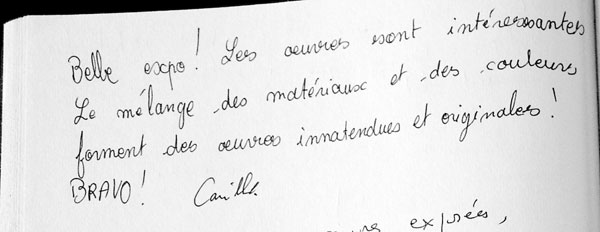 Belle expo! Les œuvres sont intéressantes
Le mélange des matériaux et des couleurs
forment des œuvres innatendues et originales!
BRAVO! Camille